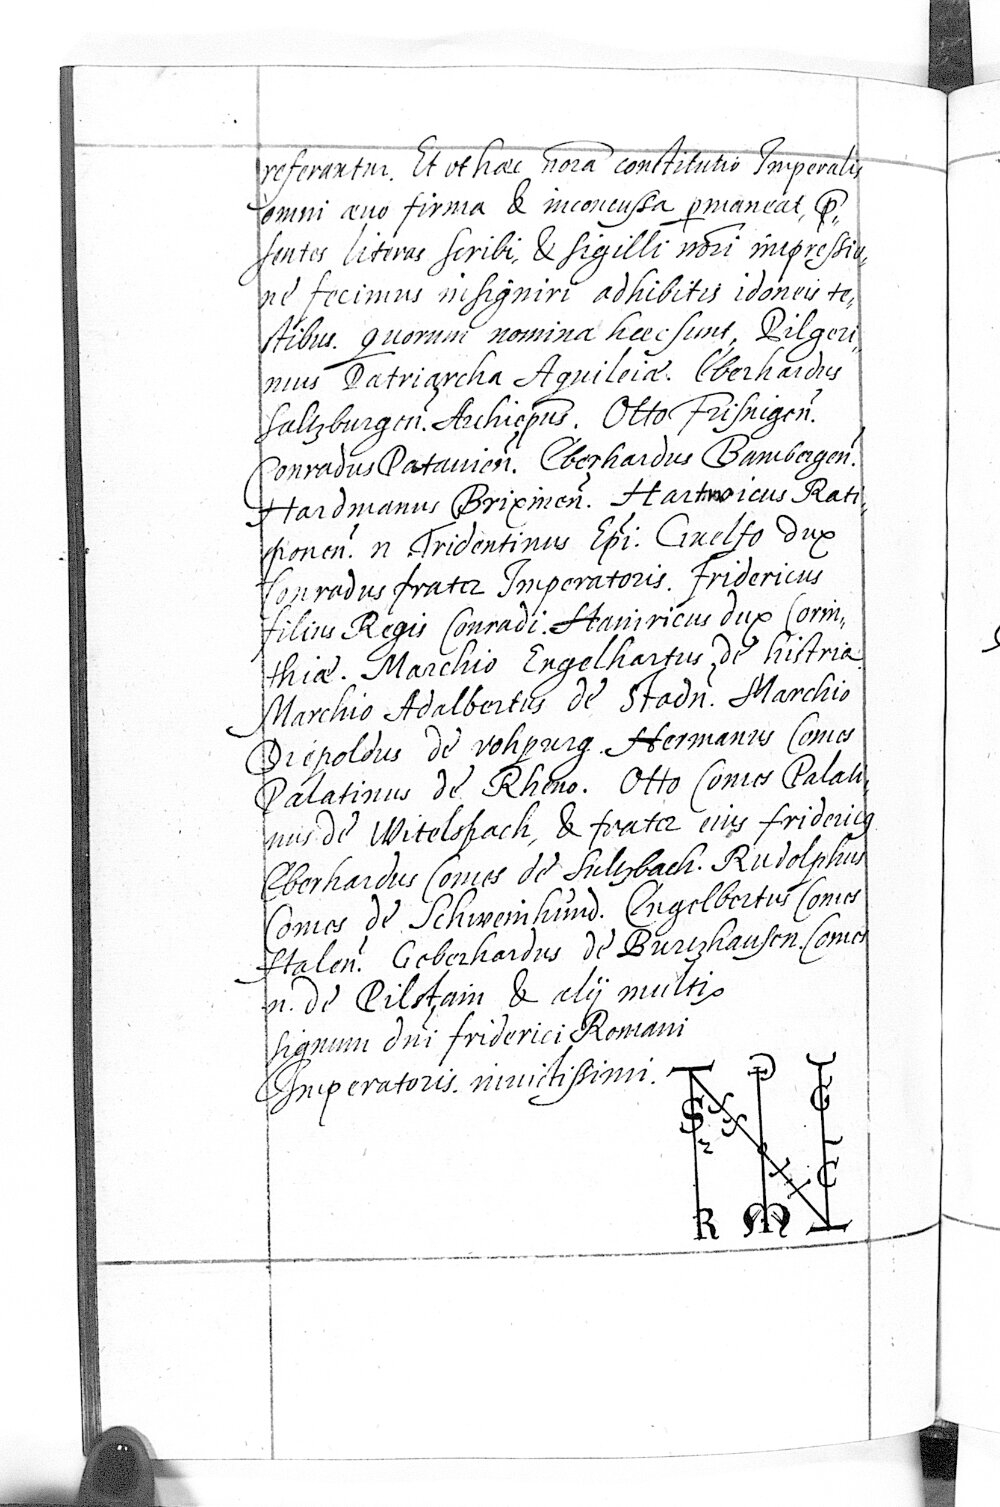 referantur. Et ut haec nora constitutio Imperalis
omni aeuo firma & inconcussa pmaneat, p„
sentes literas scribi, & sigilli nori impressio„
ne fecimus insigniri adhibitis idoneis te„
stibus. quorum nomina haec sunt, Pilgeri„
nus Patriarcha Aquileiae. Eberhardus
Saltzburgen. Archiepus. Otto Frisnigen.
Conradus Patauien. Eberhardus Bambergen.
Hardmanus Brixinen. Hartwicus Rati„
ponen. n Tridentinus Epi. Guelfo dux
Conradus frater Imperatoris. Fridericus
filius Regis Conradi. Hainricus dux Carin„
thiae. Marchio Engelhartus de histria
Marchio Adalbertus de Stadn. Marchio
Diepoldus de vohpurg. Hermanus Comes
Palatinus de Rheno. Otto Comes Palati„
nus de Witelspach, & frater eius fridericus
Eberhardus Comes de Sultzbach. Rudolphus
Comes de Schweinhund. Engelbertus Comes
Halen. Geberhardus de Burtzhausen. Comes
n. de Pilstain & alij multi
signum dni friderici Romani
Imperatoris. inuictissimi.
R M